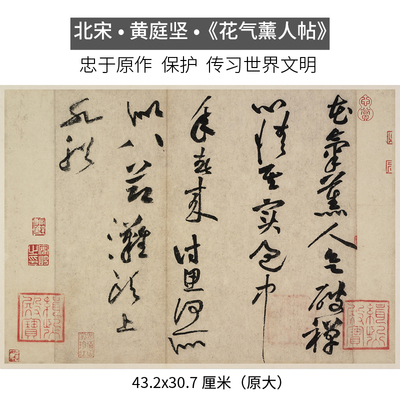 北宋 • 黄庭坚 •《花气薰人帖》
忠于原作 保护 传习世界文明
花氣薰人欲破禪
心情其實過中
年春來詩思何所
似八節灘頭上
水船
43.2x30.7 厘米（原大）